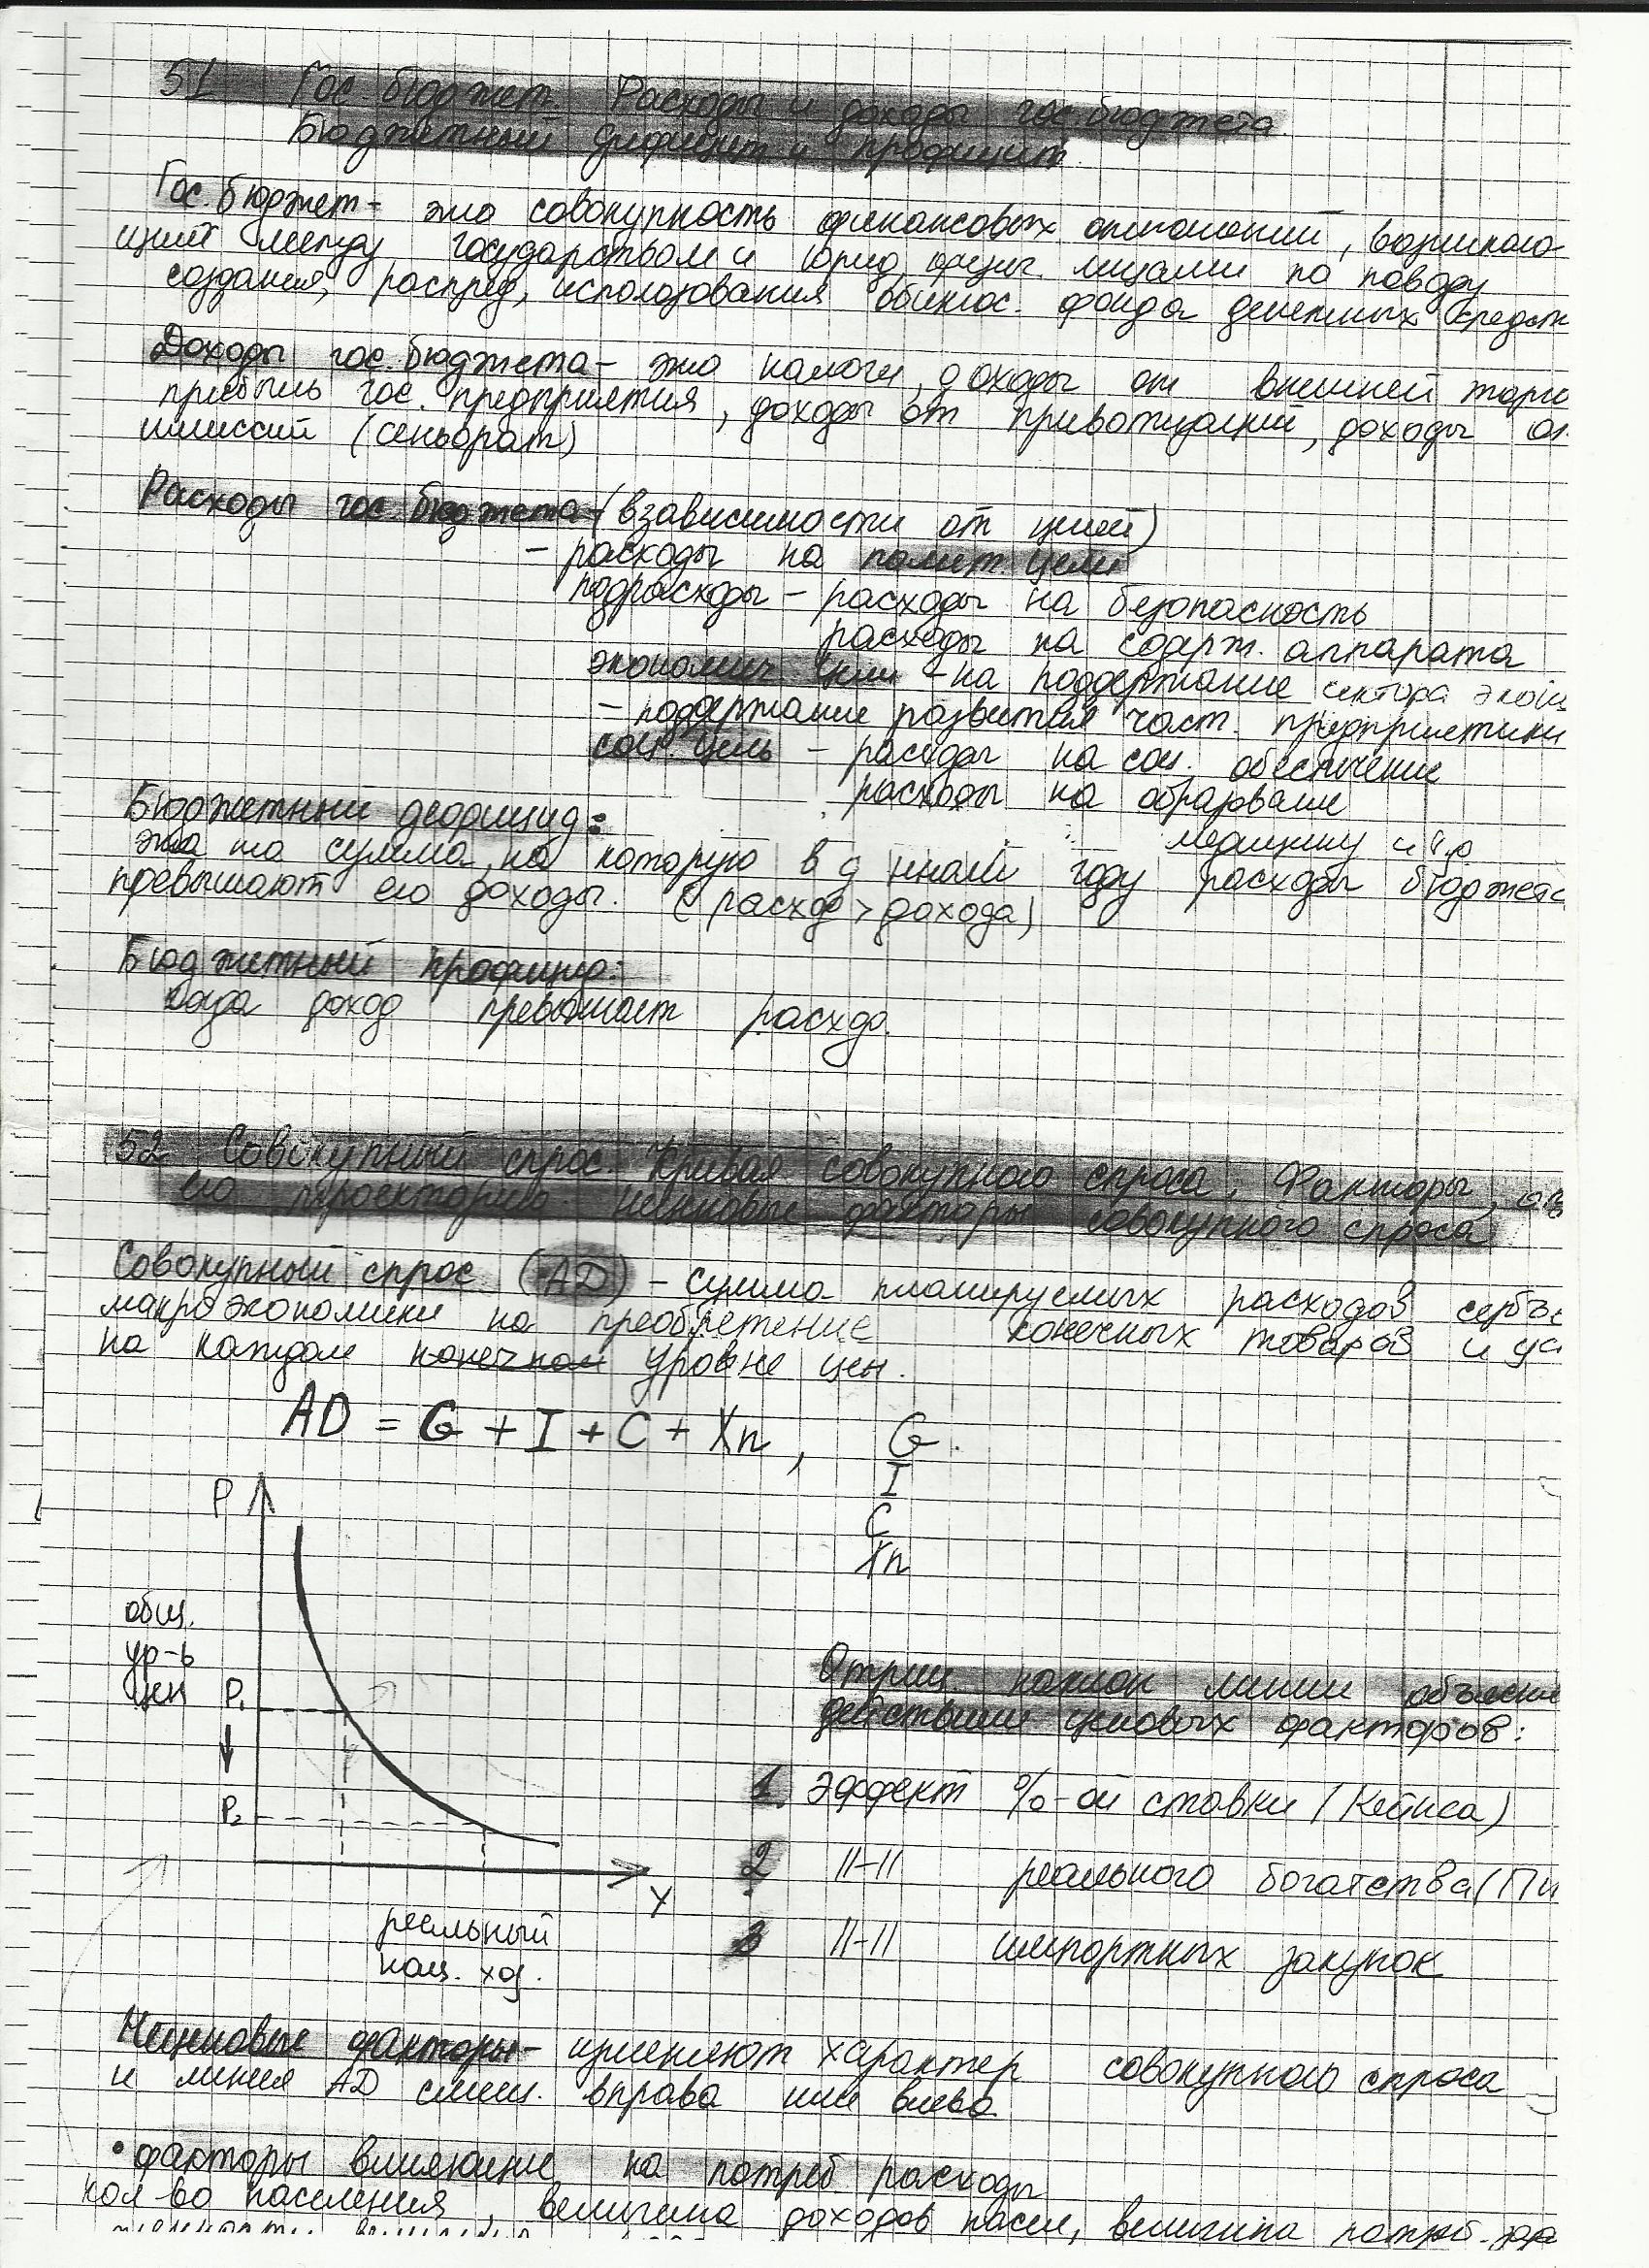 51 Гос. бюджет. Расходы и доходы гос. бюджета
Бюджетный дифицит и профицит.
Гос. бюджет - это совокупность финансовых отношений, возникаю-
щий между государством и юрид, физич. лицами по поводу
создания, распред, использования общегос. фонда денежных средст
Доходы гос. бюджета - это налоги, доходы от внешней торго
прибыль гос. предприятия, доходы от приватизаций, доходы от
имиссий (сеньорат)
Расходы гос. бюджета - (взависимости от целей)
- расходы на полит. цели
подрасходы - расходы на безопасность
расходы на содерж. аппарата
экономич цели - на поддержание сектора экон
- поддержание развития част. предприятики
соц. цель - расходы на соц. обеспечение
расходы на образован
медицину и т.д
Бюджетный дефицид:
это та сумма, на которую в д нном году расходы бюджета
превышают его доходы. (расход > дохода)
Бюджетный профицит:
доход превышает расход.
52 Совокупный спрос. Кривая совокупного спроса. Факторы, оп
его троекторию. Неценовые факторы совокупного спроса
Совокупный спрос (AD) - сумма планируемых расходов
макроэкономики на преобретение конечных товаров и ус
на каждом конечном уровне цен.
AD = G + I + C + Xn, G.
I
C
Xn
P
общ.
ур-ь
цен P₁
P₂
Y
реальный
нац. ход.
Отриц. наклон линии объясне
действием ценовых факторов:
1. Эффект %-ой ставки (Кейнса)
2. 11-11 реального богатства (Пи
3 11-11 импортных закупок
Неценовые факторы - изменяют характер совокупного спроса
и линия AD смещ. вправо или влево
• факторы влияющие на потреб расходы
кол-во населения, величина доходов насел, величина потреб.